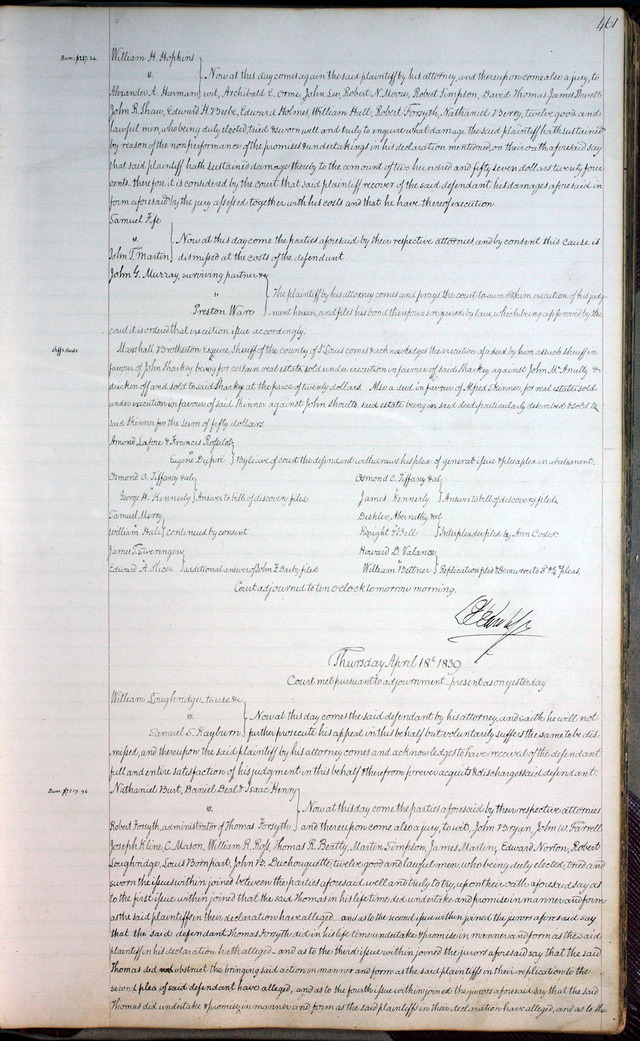 461
Dam. $257.24
William H. Hopkins
v.
Now at this day comes again the said plaintiff by his attorney, and thereupon come also a jury, to
Alexander A. Harman wit, Archibald C. Orme, John Lee, Robert N. Moore, Robert Simpson, David Thomas, James Powell
John R. Shaw, Edward H. Beebe, Edward Holmes, William Hall, Robert Forsyth, Nathaniel Berry, twelve good and
lawful men, who being duly elected, tried & sworn well and truly to enquire what damage the said plaintiff hath sustained
by reason of the nonperformance of the promises & undertakings in his declaration mentioned, on their oath aforesaid say
that said plaintiff hath sustained damage thereby to the amount of two hundred and fifty seven dollars twenty four
cents. therefore it is considered by the court that said plaintiff recover of the said defendant his damages aforesaid in
form aforesaid by the jury assessed together with his costs and that he have thereof execution.
Samuel Fife
v.
Now at this day come the parties aforesaid by their respective attornies, and by consent this cause is
John T. Martin dismissed at the costs of the defendant
John G. Murray, surviving partner &c
v
The plaintiff by his attorney comes and prays the court to award them execution of his judg-
Preston Ware ment herein, and files his bond therefor as required by law, which being approved by the
court it is ordered that execution issue accordingly.
shffs deeds
Marshall Brotherton Esquire, Sheriff of the county of St Louis comes & acknowledges the execution of a deed by him as such sheriff in
favour of John Sharkey being for certain real estate sold under execution in favour of said Sharkey, against John McAnully &
stricken off and sold to said Sharkey at the price of twenty dollars. Also a deed in favour of Alfred Skinner, for real estate sold
under execution in favour of said Skinner against John Shoults, said estate being in said deed particularly described & sold to
said Skinner for the sum of fifty dollars
Amond Lafore & Francis
v
Eugene Dupré By leave of court the defendant withdraws his plea of general issue & pleas in abatement.
Osmond C. Tiffany & al
v
George H. Kennerly Answer to bill of discovery filed
Osmond C. Tiffany & al
v
James Kennerly Answer to bill of discovery filed
Samuel Merry
v
William Hale continued by consent
Deshler, Abernathy & al
v
Knight & Bell Interpleader filed by Ann
James T. Sweringen
v
Edward A. additional answer of John F. Darby filed
Howard D. Valance
v
William Bittner Replication filed & Demurrer to 3d & 4th pleas.
Court adjourned to ten oclock tomorrow morning.
Thursday April 18th 1839
Court met pursuant to adjournment present as on yesterday
William Loughridge to use &c
vs.
Now at this day comes the said defendant by his attorney, and saith he will not
Samuel S. Rayburn further prosecute his appeal in this behalf but voluntarily suffers the same to be dis-
missed, and thereupon the said plaintiff by his attorney comes and acknowledges to have received of the defendant
full and entire satisfaction of his judgment in this behalf & therefrom forever acquits & discharges said defendant.
Nathaniel Burt, Daniel Deal & Isaac Henry
vs.
Now at this day come the parties aforesaid by their respective attornies
Robert Forsyth, administrator of Thomas Forsyth and thereupon come also a jury, to wit, John Bryan, John W. Farrell
Joseph Kline, C. Mason, William R. Ross, Thomas R. Beatty, Martin Simpson, James Martin, Edward Norton, Robert
Loughridge, Louis Bompart, John B. Duchouquette, twelve good and lawful men, who being duly elected, tried and
sworn the issues within joined between the parties aforesaid well and truly to try, upon their oath aforesaid say as
to the first issue within joined that the said Thomas in his life time did undertake and promise in manner and form
as the said plaintiffs in their declaration have alleged. and as to the second issue within joined the jurors aforesaid say
that the said defendant Thomas Forsyth did in his life time undertake & promise in manner and form as the said
plaintiff in his declaration hath alleged_ and as to the third issue within joined the jurors aforesaid say that the said
Thomas did not obstruct the bringing said action in manner and form as the said plaintiffs in their replication to the
second plea of said defendant have alleged, and as to the fourth issue within joined the jurors aforesaid say that the said
Thomas did undertake & promise in manner and form as the said plaintiffs in their declaration have alleged, and as to the